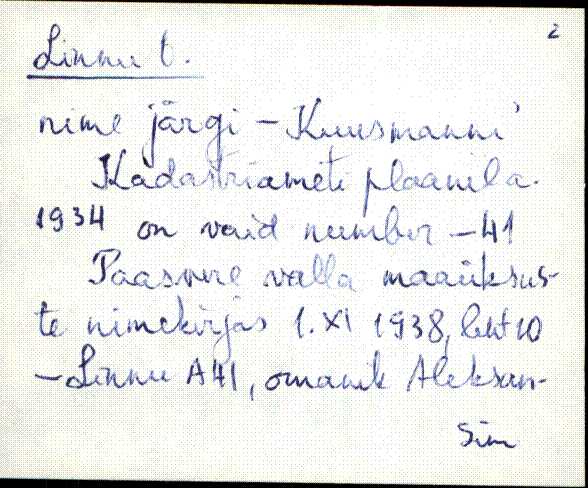 2
Linnu t.
nime järgi – Kuusmanni
Kadastriameti plaanil a.
1934 on vaid number – 41
Paasvere valla maaüksus-
te nimekirjas 1. XI 1938, leht 10
– Linnu A41, omanik Aleksan-